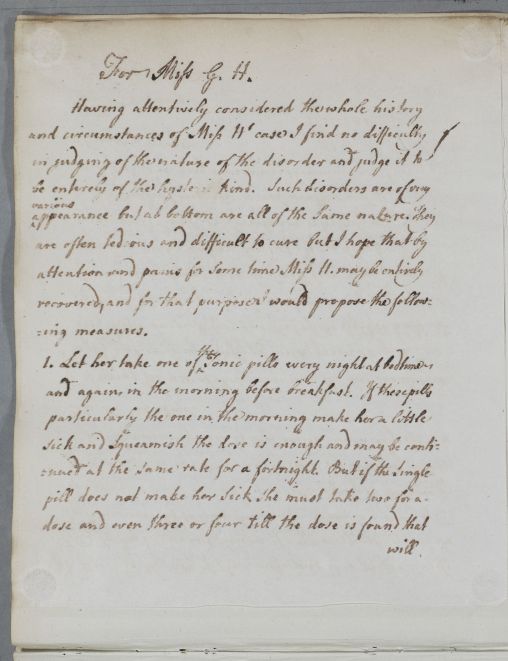 For Miss G. H.
Having attentively considered the whole history
and circumstances of Miss H's case I find no difficulty
in judging of the nature of the disorder and judge it to
be entirely of the hysteric kind. Such disorders are of very
various
appearance but at bottom are all of the same nature. They
are often tedious and difficult to cure but I hope that by
attention and pains for some time Miss H. may be entirely
recovered, and for that purpose I would propose the follow=
=ing measures.
1. Let her take one of the tonic pills every night at bedtime
and again in the morning before breakfast. If these pills
particularly the one in the morning make her a little
sick and squeamish the dose is enough and may be conti=
=nued at the same rate for a fortnight. But if the single
pill does not make her sick she must take two for a
dose and even three or four till the dose is found that
will.